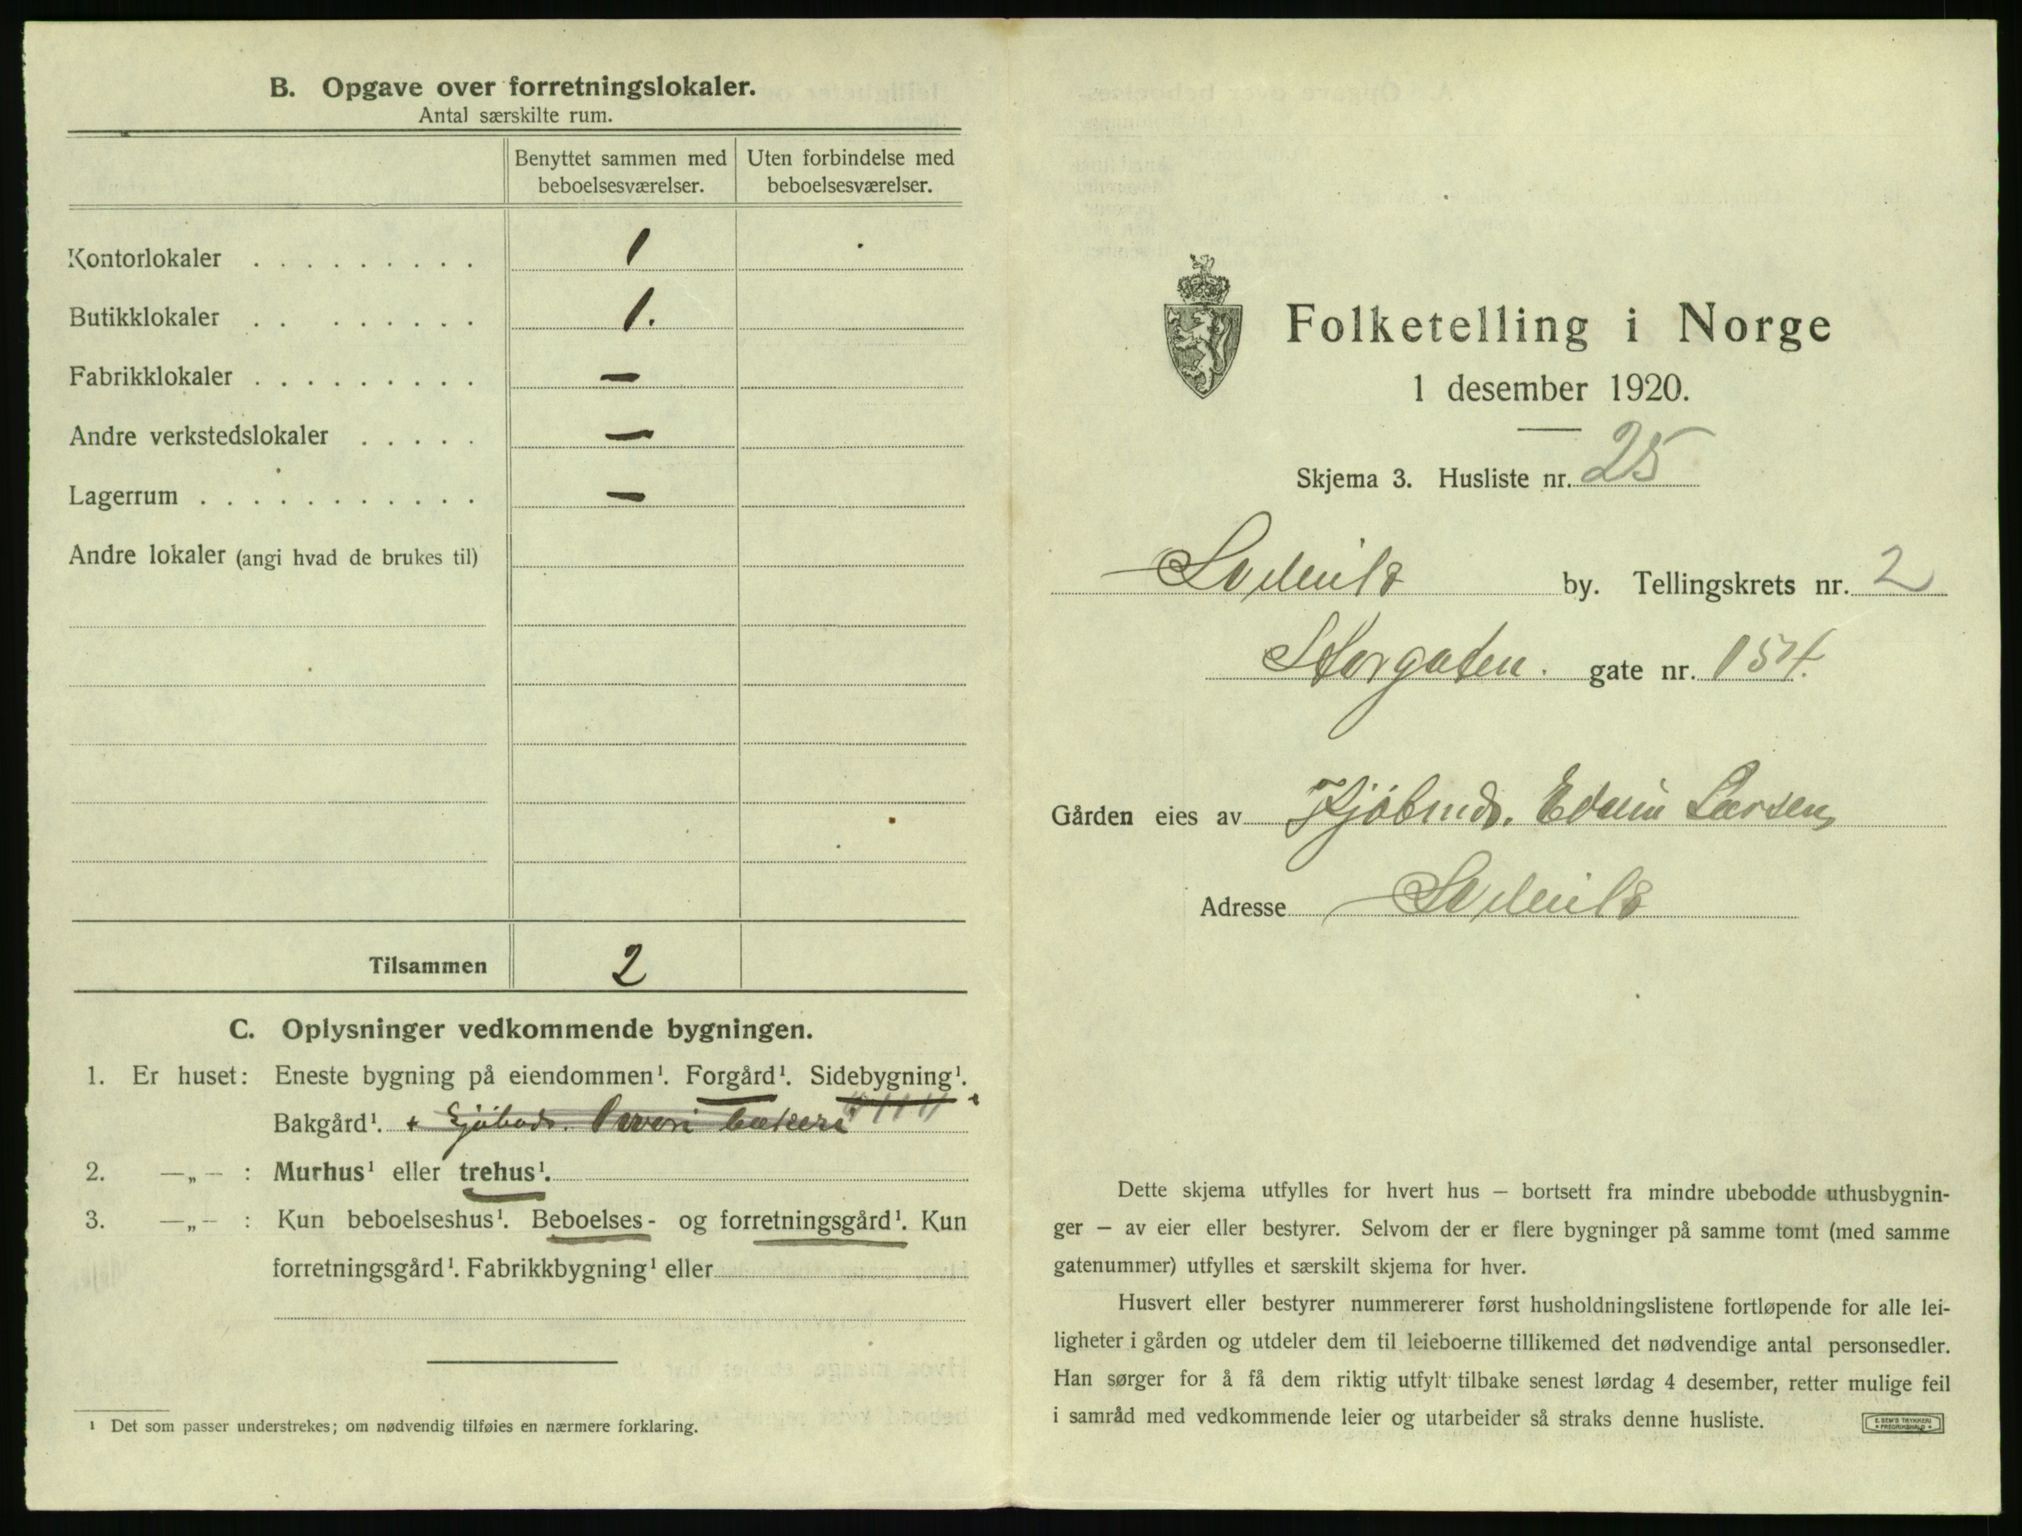 B. Opgave over forretningslokaler.
Antal særskilte rum.
Benyttet sammen med beboelsesværelser.
Uten forbindelse med beboelsesværelser.
Kontorlokaler . . . . . . . . . 1
Butikklokaler . . . . . . . . 1.
Fabrikklokaler . . . . . . . . . —
Andre verkstedslokaler . . . . . —
Lagerrum . . . . . . . . . . . —
Andre lokaler (angi hvad de brukes til)
Tilsammen 2
C. Oplysninger vedkommende bygningen.
1. Er huset: Eneste bygning på eiendommen¹. Forgård¹. Sidebygning¹.
Bakgård¹.
2. —„— : Murhus¹ eller trehus¹.
3. —„— : Kun beboelseshus¹. Beboelses- og forretningsgård¹. Kun
forretningsgård¹. Fabrikkbygning¹ eller
¹ Det som passer understrekes; om nødvendig tilføies en nærmere forklaring.
Folketelling i Norge
1 desember 1920.
Skjema 3. Husliste nr. 25
by. Tellingskrets nr. 2
Storgaten. gate nr. 154.
Gården eies av Kjøbmd. Edvin Larsen,
Adresse
Dette skjema utfylles for hvert hus — bortsett fra mindre ubebodde uthusbygnin-
ger — av eier eller bestyrer. Selvom der er flere bygninger på samme tomt (med samme
gatenummer) utfylles et særskilt skjema for hver.
Husvert eller bestyrer nummererer først husholdningslistene fortløpende for alle lei-
ligheter i gården og utdeler dem til leieboerne tillikemed det nødvendige antal personsedler.
Han sørger for å få dem riktig utfylt tilbake senest lørdag 4 desember, retter mulige feil
i samråd med vedkommende leier og utarbeider så straks denne husliste.
E. SEM'S TRYKKERI
FREDRIKSHALD